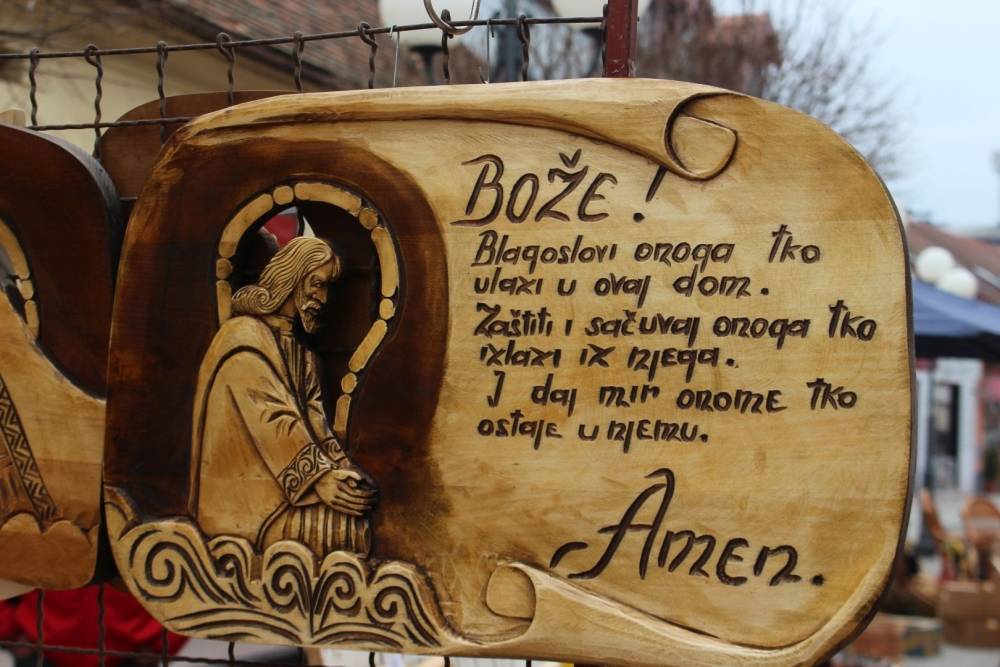 BOŽE!
Blagoslovi onoga tko
ulazi u ovaj dom.
Zaštiti i sačuvaj onoga tko
izlazi iz njega.
I daj mir onome tko
ostaje u njemu.
Amen.